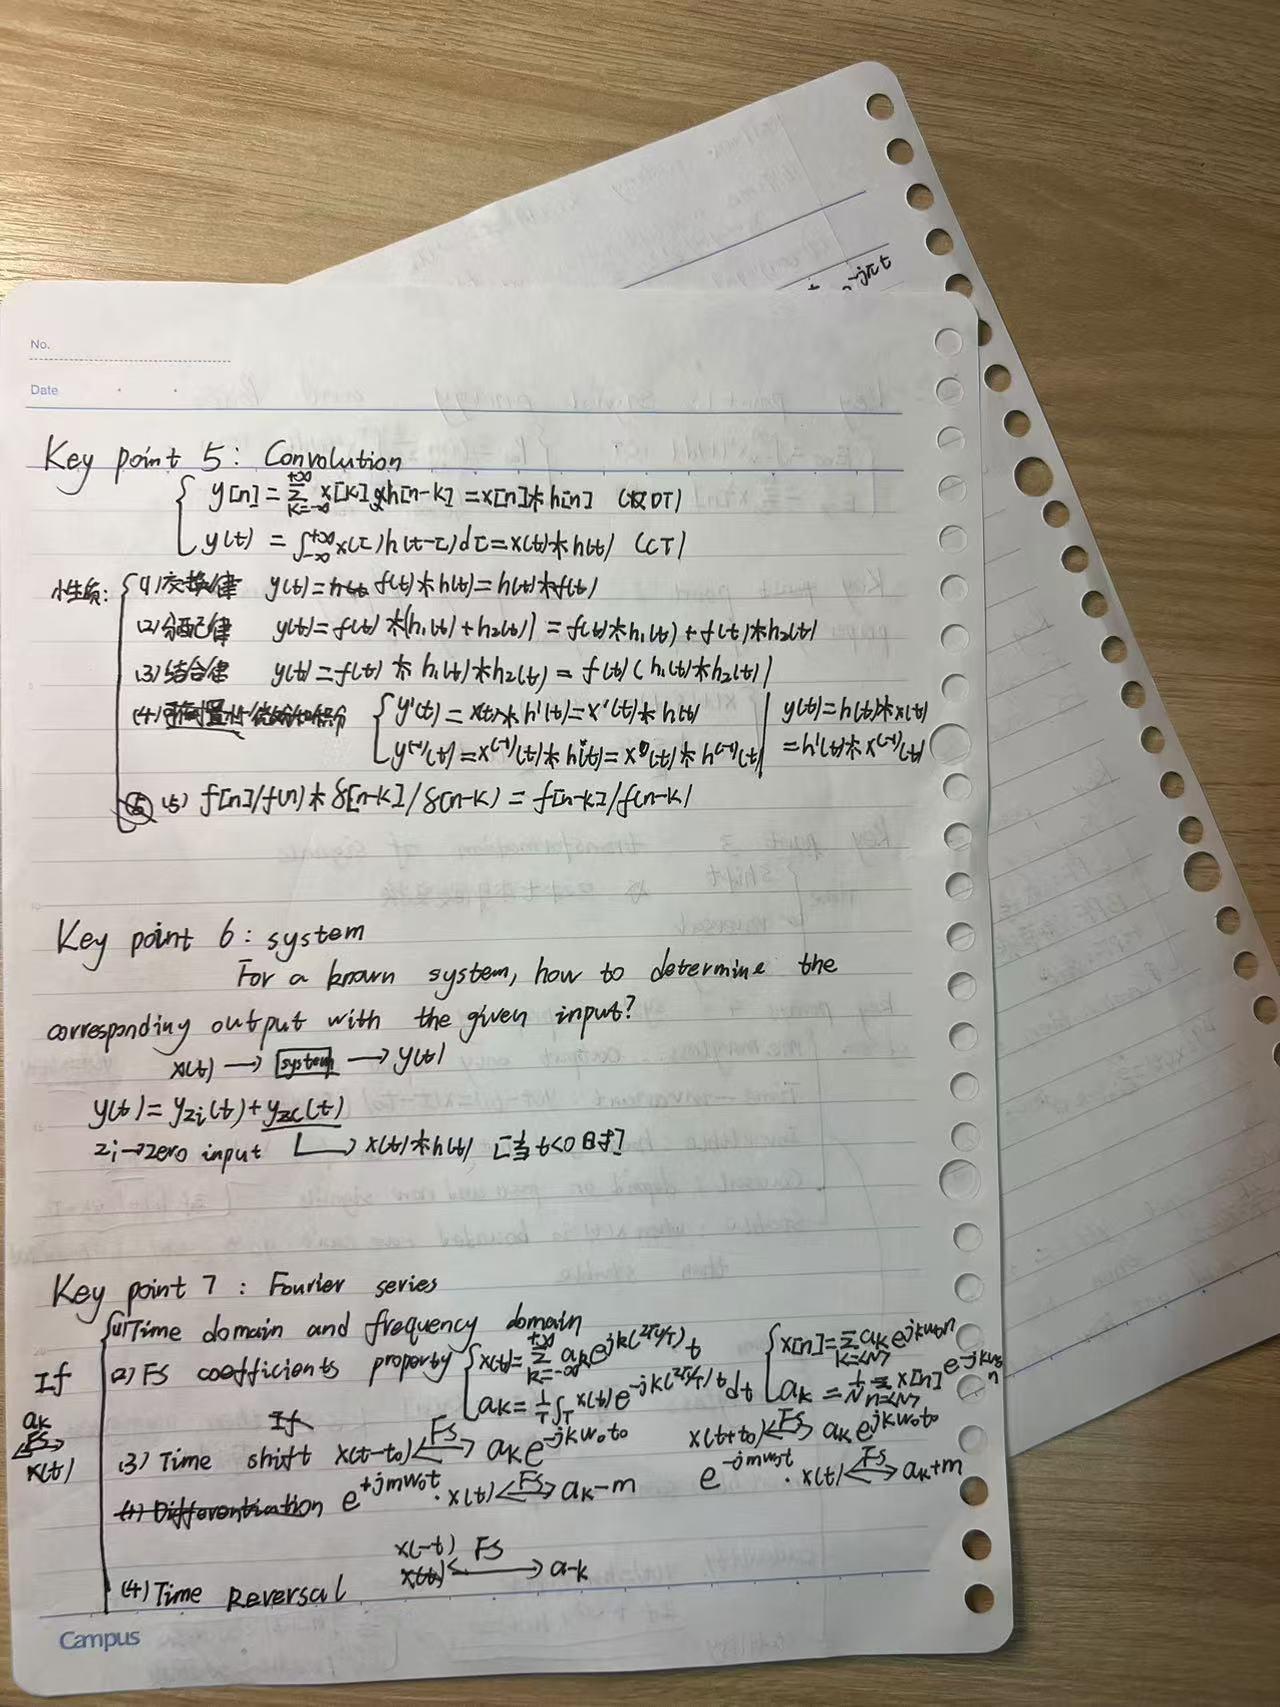 e^{-jπt}
No.
Date
Key point 5: Convolution
y[n] = \sum_{k=-∞}^{+∞} x[k] h[n-k] = x[n]*h[n] (DT)
y(t) = ∫_{-∞}^{+∞} x(τ)h(t-τ)dτ = x(t)*h(t) (CT)
小性质: (1) 交换律 y(t) = f(t)*h(t) = h(t)*f(t)
(2) 分配律 y(t) = f(t)*(h_1(t)+h_2(t)) = f(t)*h_1(t)+f(t)*h_2(t)
(3) 结合律 y(t) = f(t)*h_1(t)*h_2(t) = f(t)(h_1(t)*h_2(t))
(4) 微分和积分 y'(t) = x(t)*h'(t) = x'(t)*h(t) y(t) = h(t)*x(t)
y^{(-1)}(t) = x^{(-1)}(t)*h(t) = x(t)*h^{(-1)}(t) = h'(t)*x^{(-1)}(t)
(5) f[n]/f(n)*δ[n-k]/δ(n-k) = f[n-k]/f(n-k)
Key point 6: system
For a known system, how to determine the
corresponding output with the given input?
x(t) → system → y(t)
y(t) = y_{zi}(t)+y_{zc}(t)
zi→zero input → x(t)*h(t) [当t<0时]
Key point 7: Fourier series
(1) Time domain and frequency domain
(2) FS coefficients property x(t) = \sum_{k=-∞}^{+∞} a_k e^{jk(2π/T)t} x[n] = \sum_{k=<N>} a_k e^{jkw_0n}
If
a_k = \frac{1}{T} ∫_T x(t)e^{-jk(2π/T)t}dt a_k = \frac{1}{N} \sum_{n=<N>} x[n] e^{-jkw_0n}
a_k
FS
x(t)
If
(3) Time shift x(t-t_0) ⟷^{FS} a_k e^{-jkw_0t_0} x(t+t_0) ⟷^{FS} a_k e^{jkw_0t_0}
(4) Differentiation e^{+jmw_0t}·x(t) ⟷^{FS} a_{k-m} e^{-jmw_0t}·x(t) ⟷^{FS} a_{k+m}
x(-t)
(4) Time Reversal x(t) ⟷^{FS} a_{-k}
Campus